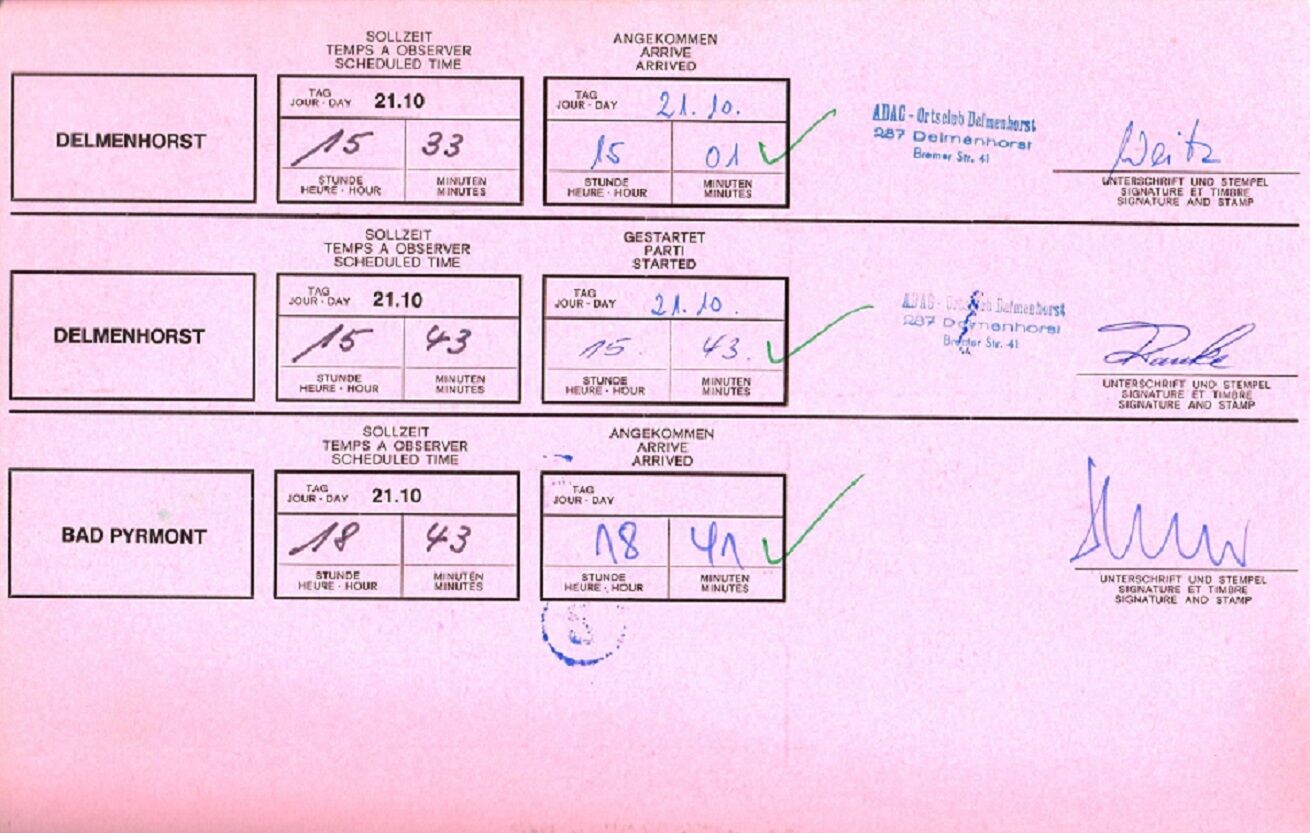 SOLLZEIT
TEMPS A OBSERVER
SCHEDULED TIME
ANGEKOMMEN
ARRIVE
ARRIVED
DELMENHORST
TAG
JOUR · DAY 21.10
15 33
STUNDE
HEURE · HOUR
MINUTEN
MINUTES
TAG
JOUR · DAY 21.10.
15 01
STUNDE
HEURE · HOUR
MINUTEN
MINUTES
ADAC - Ortsclub Delmenhorst
287 Delmenhorst
Bremer Str. 41
Weitz
UNTERSCHRIFT UND STEMPEL
SIGNATURE ET TIMBRE
SIGNATURE AND STAMP
SOLLZEIT
TEMPS A OBSERVER
SCHEDULED TIME
GESTARTET
PARTI
STARTED
DELMENHORST
TAG
JOUR · DAY 21.10
15 43
STUNDE
HEURE · HOUR
MINUTEN
MINUTES
TAG
JOUR · DAY 21.10.
15. 43.
STUNDE
HEURE · HOUR
MINUTEN
MINUTES
ADAC - Ortsclub Delmenhorst
287 Delmenhorst
Bremer Str. 41
UNTERSCHRIFT UND STEMPEL
SIGNATURE ET TIMBRE
SIGNATURE AND STAMP
SOLLZEIT
TEMPS A OBSERVER
SCHEDULED TIME
ANGEKOMMEN
ARRIVE
ARRIVED
BAD PYRMONT
TAG
JOUR · DAY 21.10
18 43
STUNDE
HEURE · HOUR
MINUTEN
MINUTES
TAG
JOUR · DAY
18 41
STUNDE
HEURE · HOUR
MINUTEN
MINUTES
UNTERSCHRIFT UND STEMPEL
SIGNATURE ET TIMBRE
SIGNATURE AND STAMP